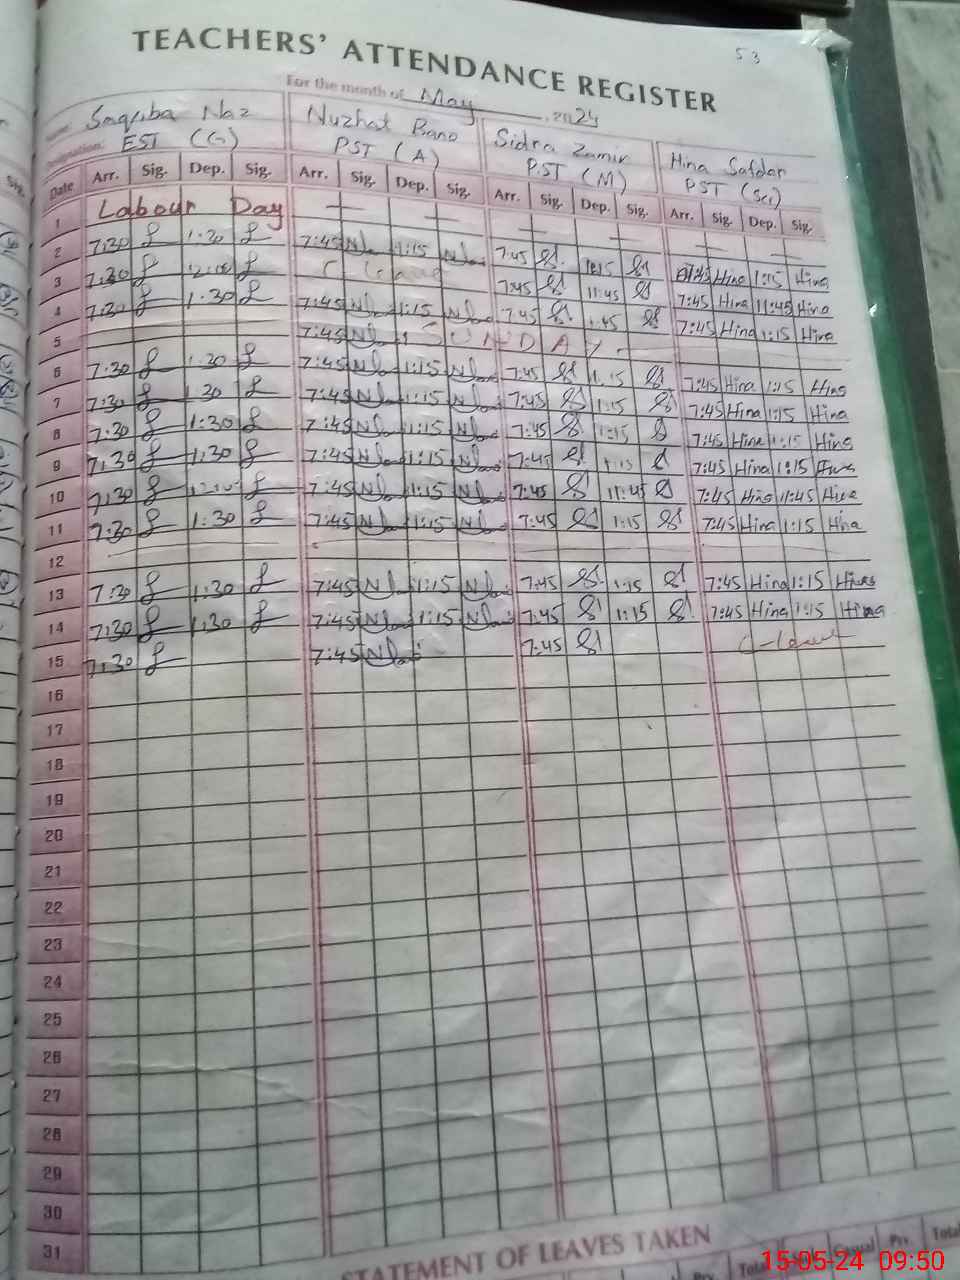 53
TEACHERS' ATTENDANCE REGISTER
For the month of May 2024
Name: Saquba Naz Nuzhat Bano Sidra Zamir Hina Safdar
Designation: EST (G) PST (A) PST (M) PST (Sci)
Date Arr. Sig. Dep. Sig. Arr. Sig. Dep. Sig. Arr. Sig. Dep. Sig. Arr. Sig. Dep. Sig.
1 Labour Day
2 7:30 1:30 7:45 1:15 7:45 7:45 Hina 1:15 Hina
3 7:30 C leave 7:45 11:45 7:45 Hina 11:45 Hina
4 7:30 1:30 7:45 1:15 7:45 7:45 Hina 1:15 Hina
5 7:45 SUNDAY
6 7:30 1:30 7:45 1:15 7:45 1:15 7:45 Hina 1:15 Hina
7 7:30 1:30 7:45 1:15 7:45 1:15 7:45 Hina 1:15 Hina
8 7:30 1:30 7:45 1:15 7:45 1:15 7:45 Hina 1:15 Hina
9 7:30 1:30 7:45 1:15 7:45 1:15 7:45 Hina 1:15 Hina
10 7:30 7:45 1:15 7:45 11:45 7:45 Hina 11:45 Hina
11 7:30 1:30 7:45 1:15 7:45 1:15 7:45 Hina 1:15 Hina
12
13 7:30 1:30 7:45 1:15 7:45 1:15 7:45 Hina 1:15 Hina
14 7:30 1:30 7:45 1:15 7:45 1:15 7:45 Hina 1:15 Hina
15 7:30 7:45 7:45 C-leave
16
17
18
19
20
21
22
23
24
25
26
27
28
29
30
31
STATEMENT OF LEAVES TAKEN
Total Casual Prv. Total
15-05-24 09:50